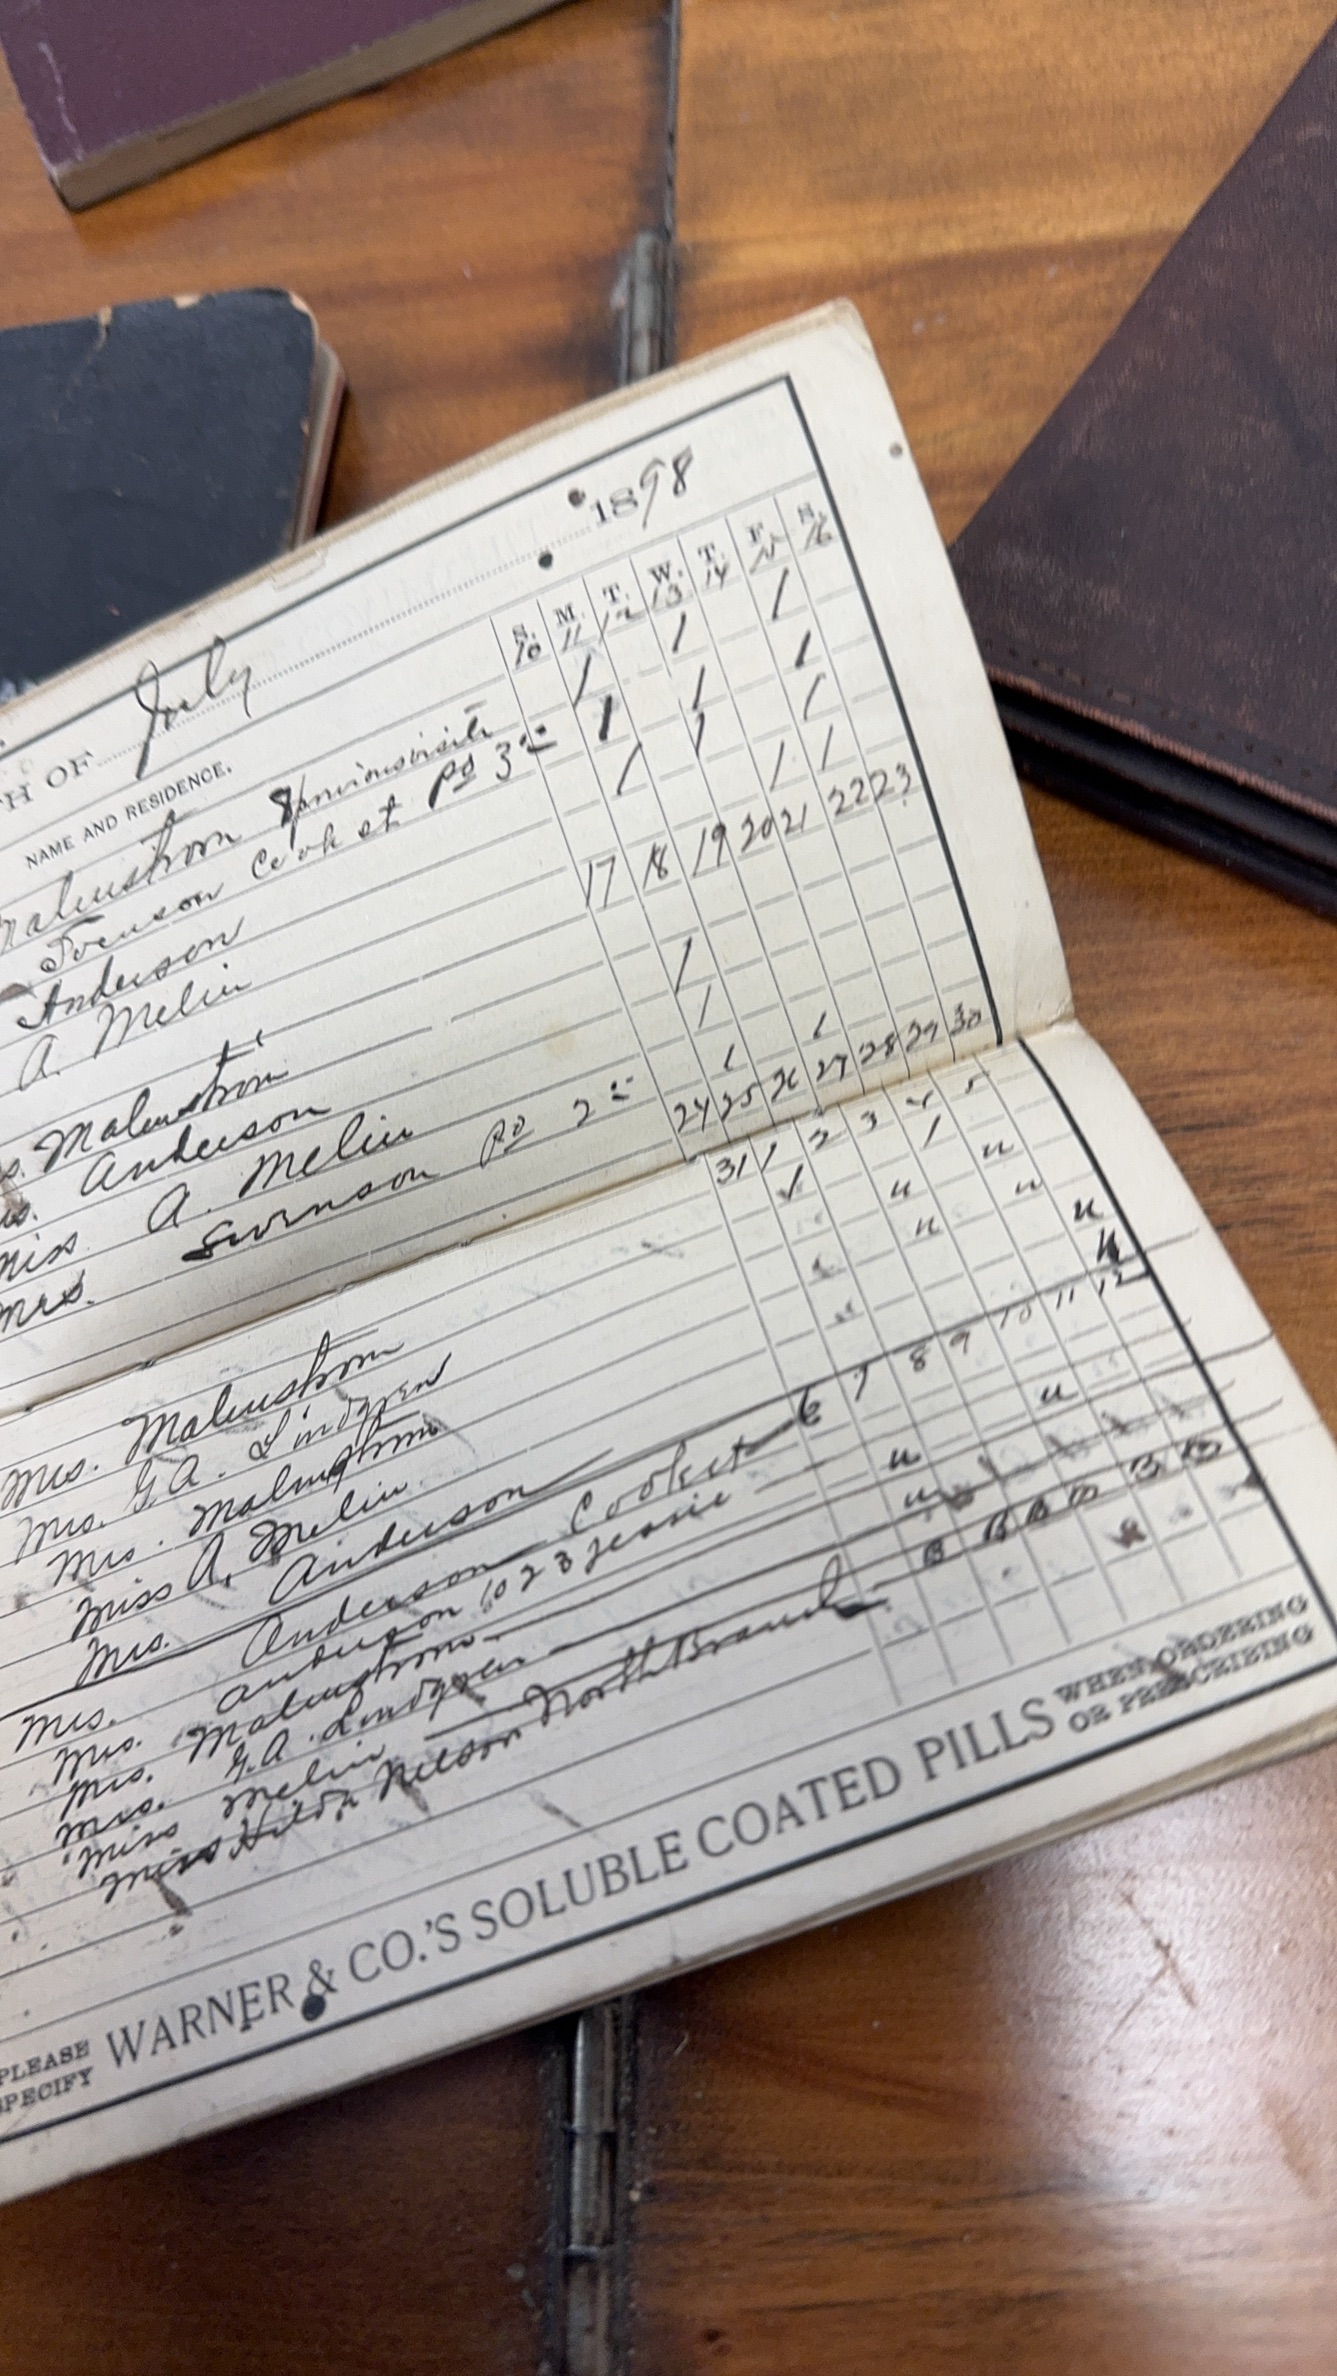 TH OF July 1898
NAME AND RESIDENCE.
S. M. T. W. T. F. S.
10 11 12 13 14 15 16
Malmstrom 8 previous visits
Svenson Cook st pd 3
Anderson
A. Melin
17 18 19 20 21 22 23
Malmstrom
Anderson
Miss A. Melin
Mrs. Swenson pd 2
24 25 26 27 28 29 30
31 1 2 3 4 5
Mrs. Malmstrom
Mrs. G.A. Lindgren
Mrs. Malmstrom
Miss A. Melin
Mrs. Anderson
6 7 8 9 10 11 12
Mrs. Anderson Cook st
Mrs. Anderson 1023 Jessie
Mrs. Malmstrom
Mrs. G.A. Lindgren
Miss Melin
Miss Hilda Nelson North Branch B B B B B B
PLEASE SPECIFY WARNER & CO.'S SOLUBLE COATED PILLS WHEN ORDERING OR PRESCRIBING